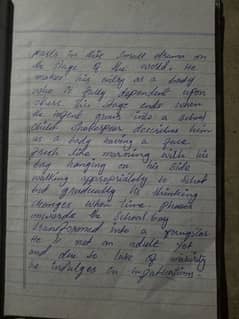 parts in this small drama on
the stage of the world. He
makes his entry as a body
who is fully dependent upon
others. This stage ends when
the infant grows into a school
child. Shakespear describes him
as a body having a face
fresh like morning with his
bag hanging on his side
walking appropriately to school
but gradually his thinking
changes when time phases
onwards the school boy
transformed into a youngster.
He is not an adult yet
and due to lack of maturity
he indulges in infatuations.